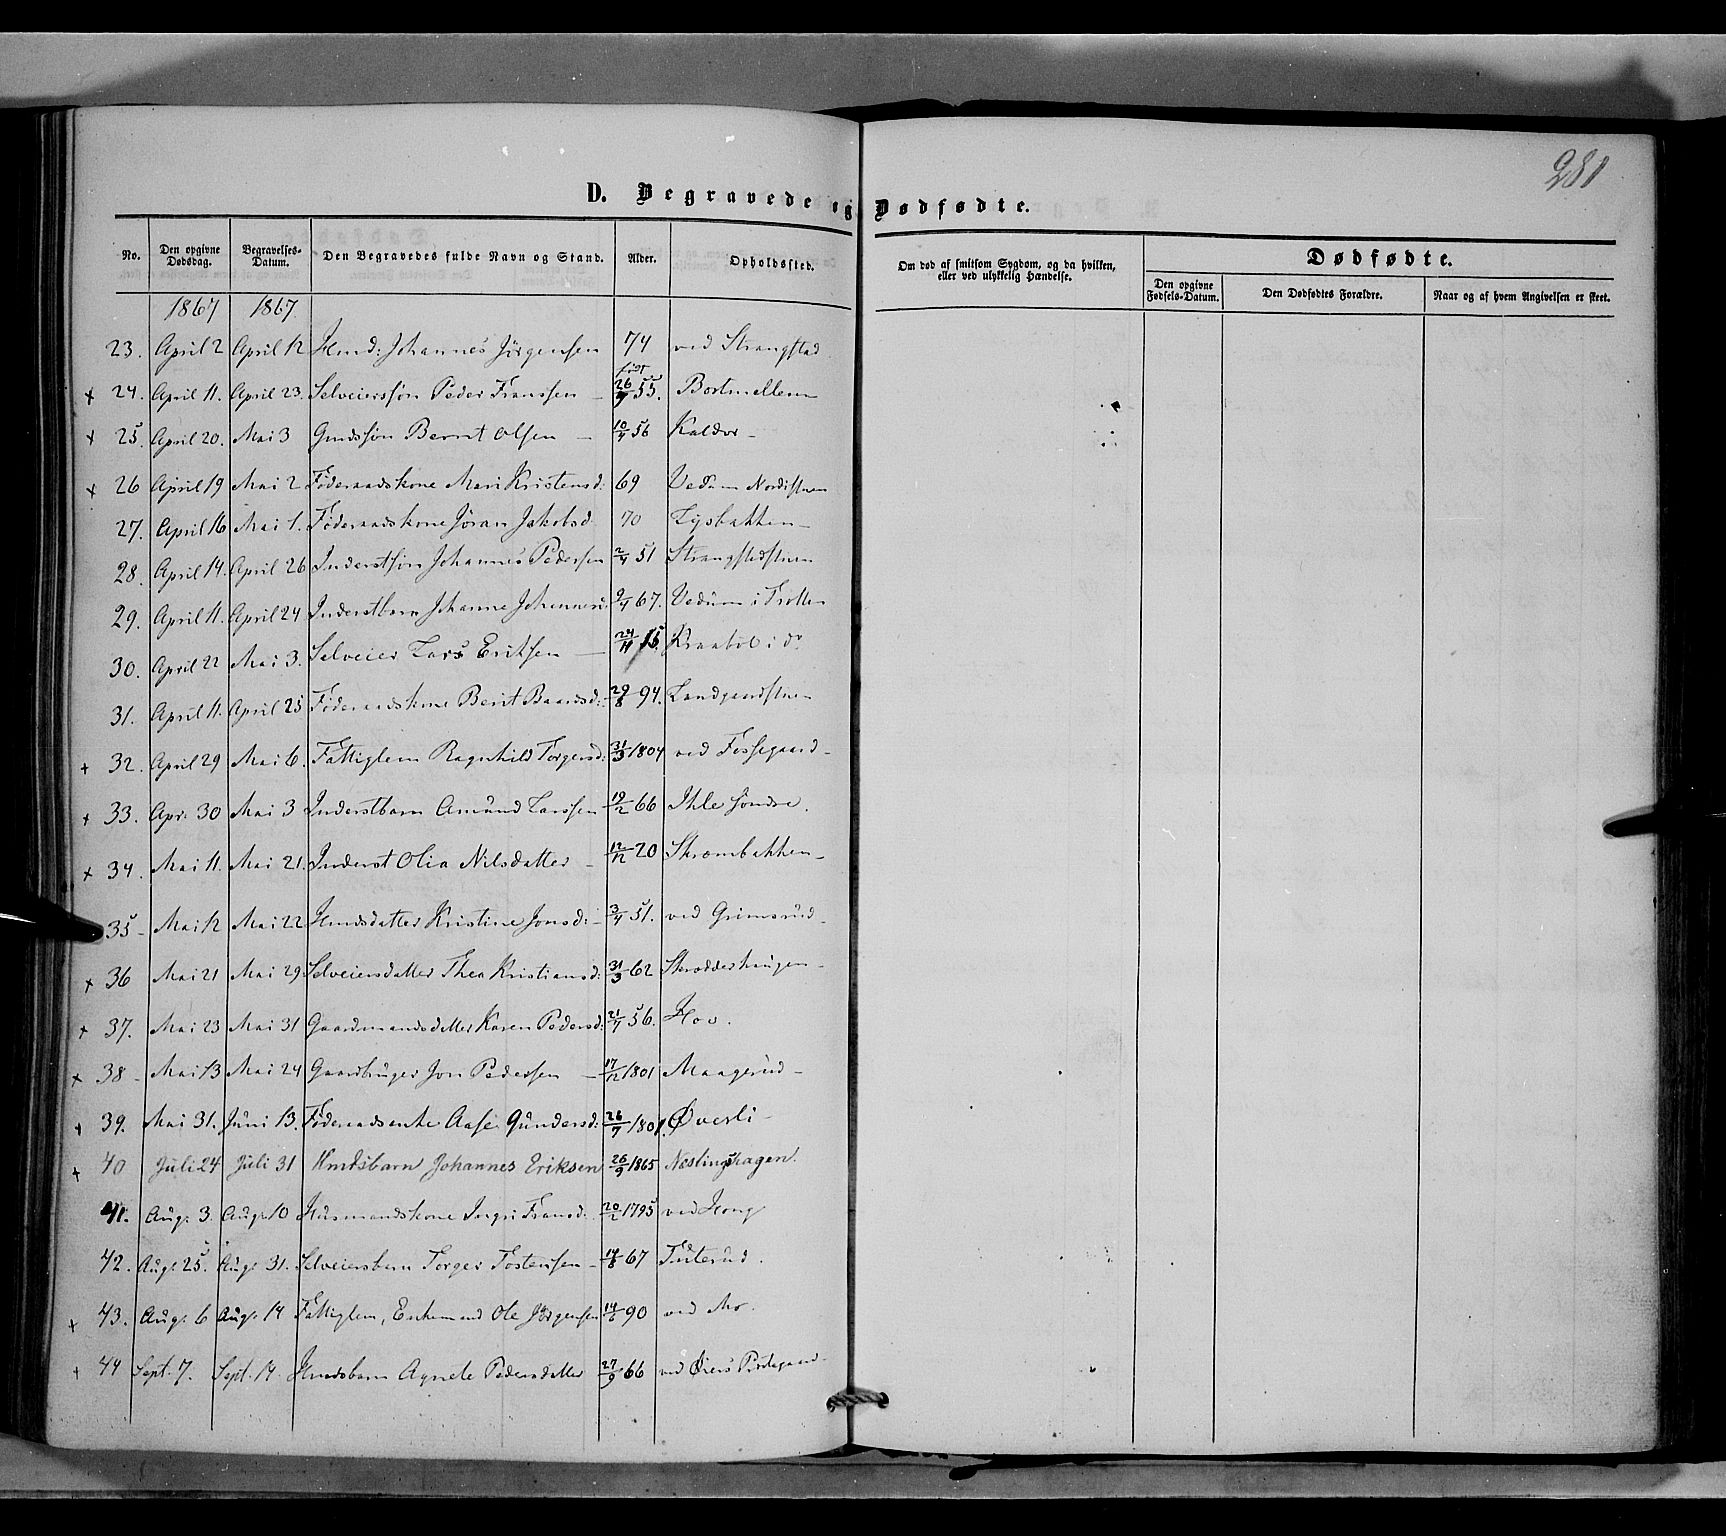 281
D. Begravede og Dødfødte.
No. Den opgivne Dødsdag. Begravelses-Datum. Den Begravedes fulde Navn og Stand. Alder. Opholdssted. Om død af smitsom Sygdom, og da hvilken, eller ved ulykkelig Hændelse. Dødfødte.
Den opgivne Fødsels-Datum. Den Dødfødtes Forældre. Naar og af hvem Angivelsen er skeet.
1867 1867.
23. April 2 April 12 Hmd: Johannes Jörgensen 74 ved Strangstad.
født
+ 24. April 11. April 23. Selveiersøn Peder Franssen – 26/9 55.
+ 25. April 20. Mai 3 Gmdssön Bernt Olsen – 10/4 56 Kaldor –
+ 26 April 19 Mai 2 Föderaadskone Mari Kristensd: 69 Vedum Nordistuen
27. April 16 Mai 1. Föderaadskone Jöran Jakobsd. 70 Lysbakken –
28. April 14. April 26 Inderstsön Johannes Pedersen 2/4 51 Strangstadstuen
29. April 11. April 24 Inderstbarn Johanne Johannesd. 9/4 67. Vedum i Trotten
30. April 22 Mai 3. Selveier Lars Eriksen – 24/11 15. Kraabøl i do
31. April 11. April 25 Föderaadskone Berit Baardsd: 29/8 94. Landgaardstuen
+ 32. April 29 Mai 6. Fattiglem Ragnhild Torgersd: 31/3 1804 ved Fossegaard –
+ 33. Apr. 30 Mai 3 Inderstbarn Amund Larssen 19/2 66 Ihle söndre.
+ 34. Mai 11. Mai 21. Inderst Olia Nilsdatter – 12/12 20 Skrombakken –
35 – Mai 12 Mai 22 Hmdsdatter Kristine Jonsd: – 3/4 51. ved Grimsrud –
+ 36 Mai 21 Mai 29 Selveiersdatter Thea Kristiansd: 31/3 62
+ 37. Mai 23 Mai 31 Gaardmandsdatter Karen Pedersd: 21/7 56. Hov.
+ 38 – Mai 13 Mai 24 Gaardbruger Jon Pedersen – 17/12 1801 Maagerud –
+ 39. Mai 31. Juni 13. Föderaadsenke Aase Gundersd: 26/7 1801. Øverli –
+ 40 Juli 24 Juli 31 Hmdsbarn Johannes Eriksen 26/9 1865 Næstingshagen.
41. Aug. 3. Aug. 10 Husmandskone Ingri Fransd. 20/2 1795 ved Hong
42. Aug. 25. Aug. 31. Selveierbarn Torger Tostensen – 14/8 67 Tuterud.
+ 43. Aug. 6 Aug. 14 Fattiglem, Enkemand Ole Jörgensen 14/6 90 ved Mo.
+ 44 Sept. 7. Sept. 14. Hmdsbarn Agnete Pedersdatter 27/9 66 ved Øiers Prestegaard –